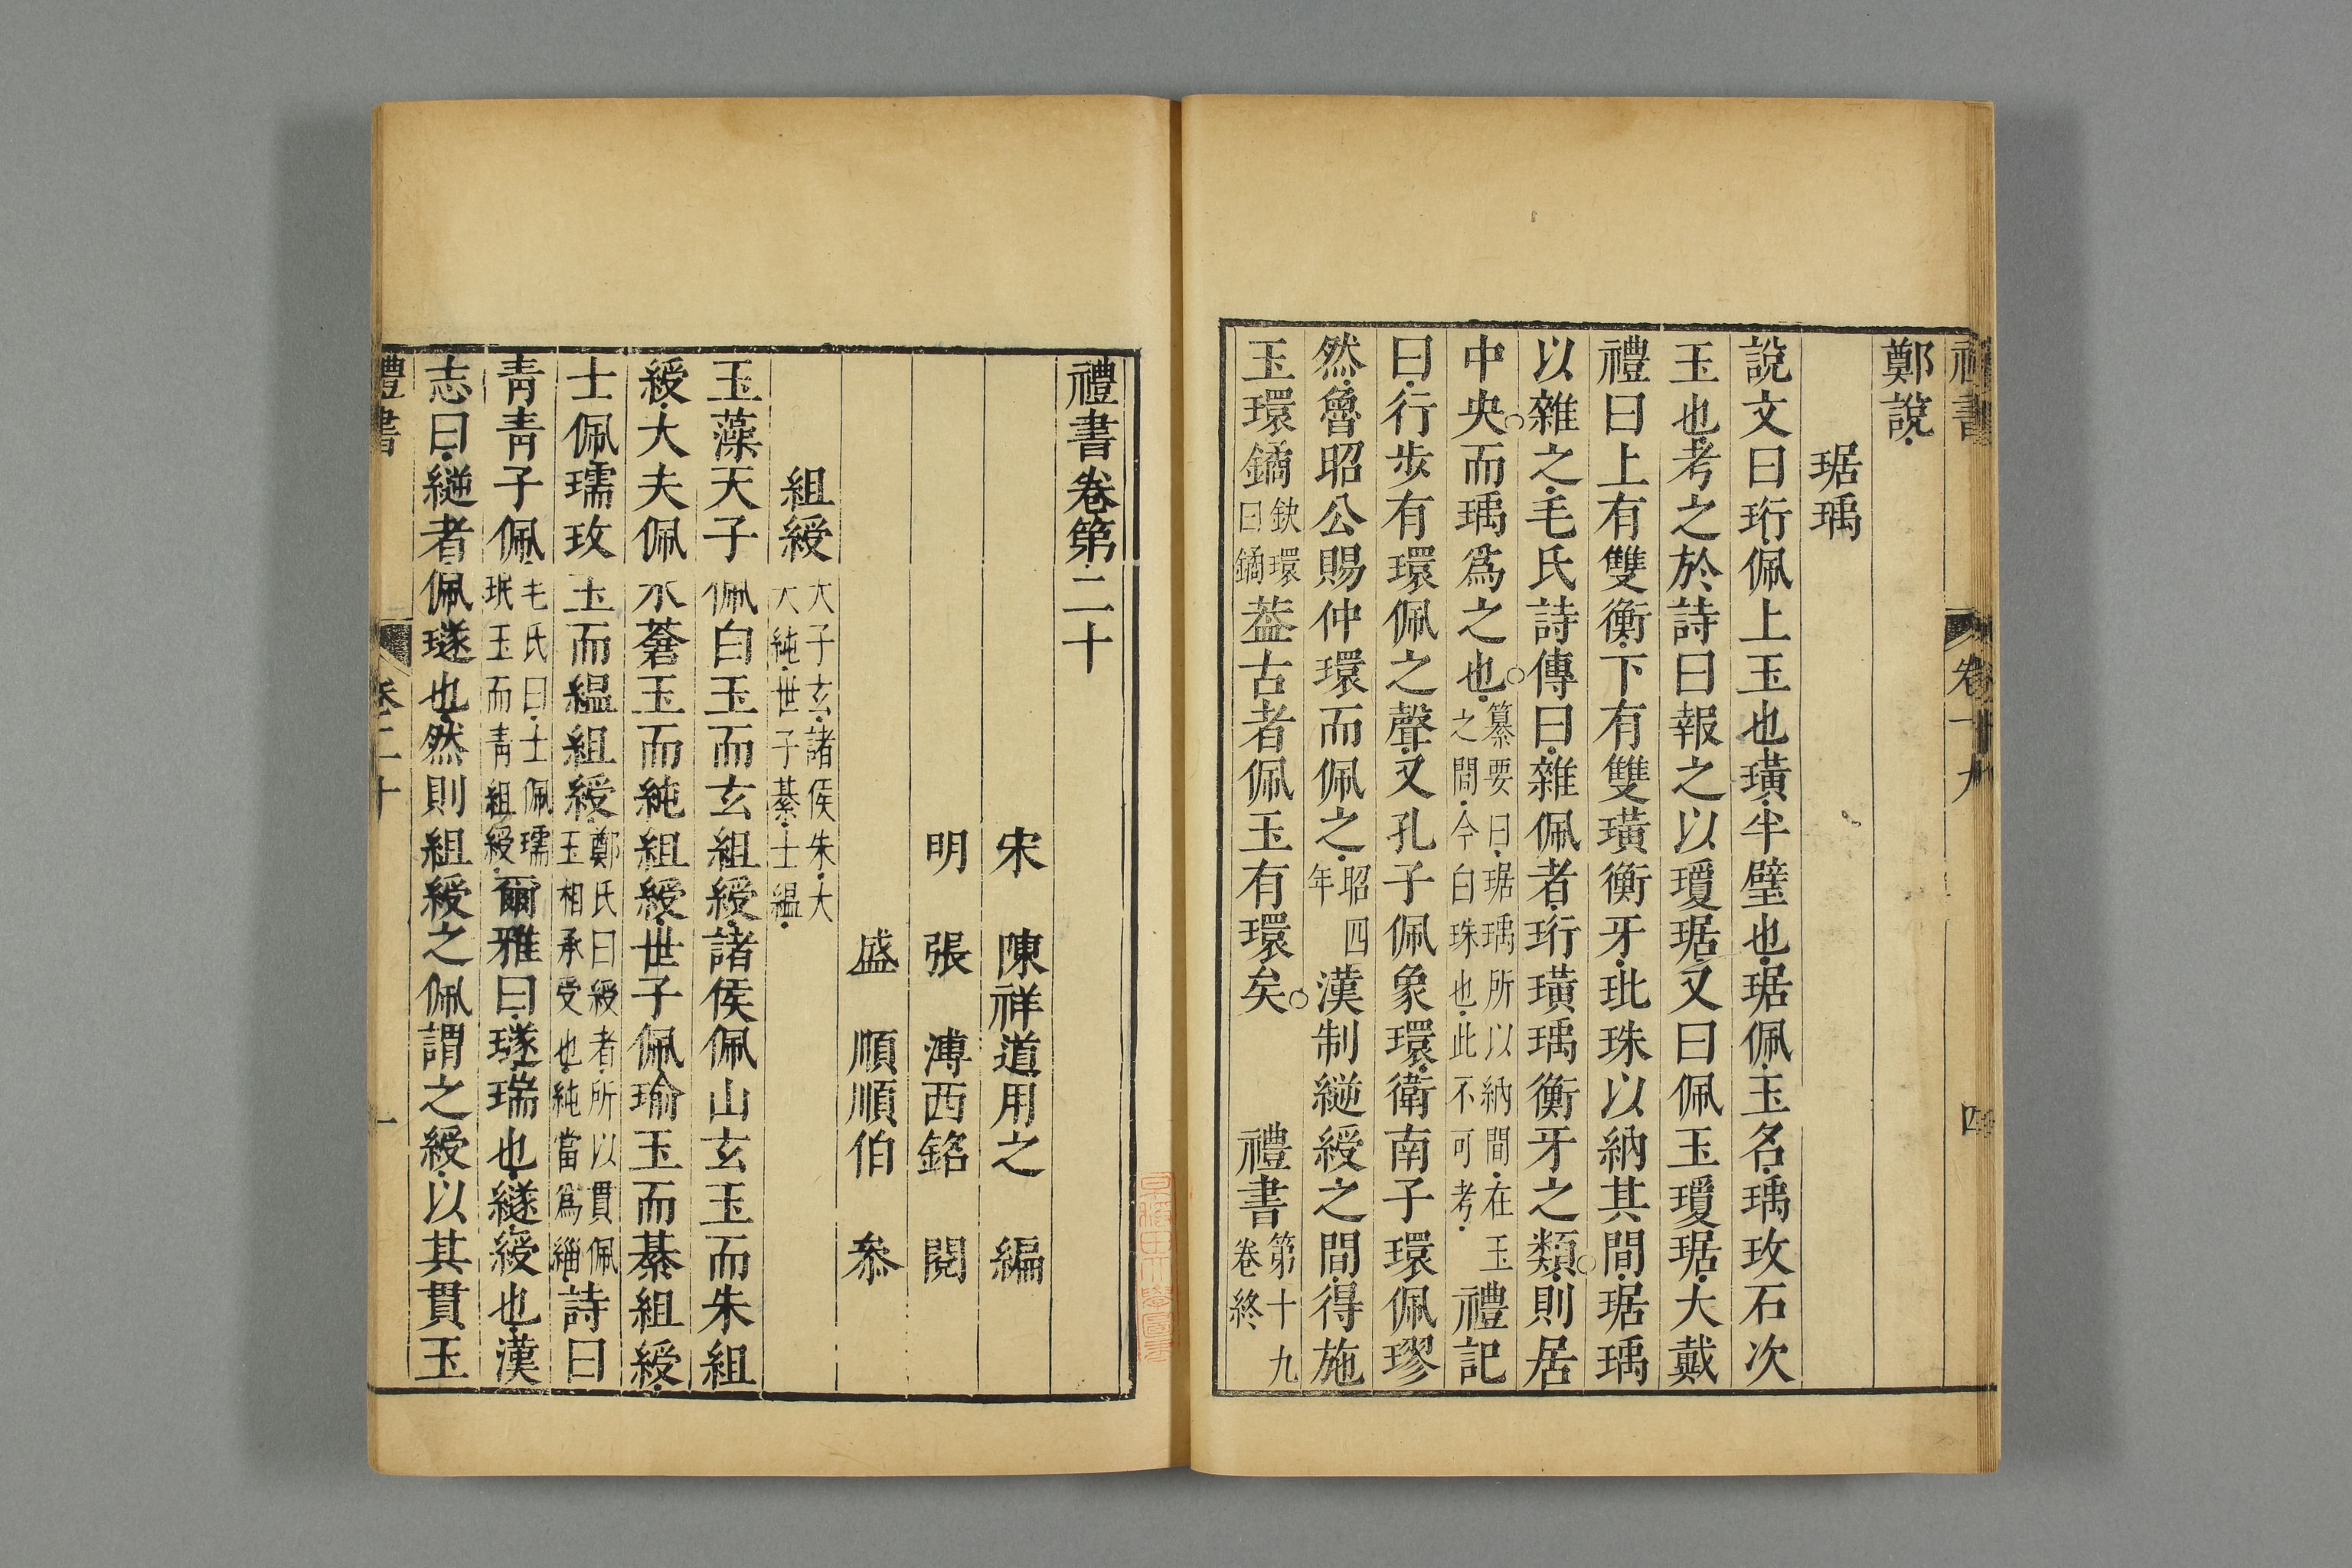 禮書
卷十九
四
鄭說
琚瑀
說文曰珩佩上玉也璜半璧也琚佩玉名瑀玫石次
玉也考之於詩曰報之以瓊琚又曰佩玉瓊琚大戴
禮曰上有雙衡下有雙璜衡牙玭珠以納其間琚瑀
以雜之毛氏詩傳曰雜佩者珩璜瑀衡牙之類則居
中央而瑀爲之也纂要曰琚瑀所以納間在玉之間今白珠也此不可考禮記
曰行步有環佩之聲又孔子佩象環衛南子環佩璆
然魯昭公賜仲環而佩之昭四年漢制縌綬之間得施
玉環鐍鈌環曰鐍葢古者佩玉有環矣 禮書第十九卷終
禮書卷第二十
宋 陳祥道用之 編
明 張溥西銘 閱
盛順順伯 叅
組綬天子玄諸侯朱大夫純世子綦士縕
玉藻天子佩白玉而玄組綬諸侯佩山玄玉而朱組
綬大夫佩水蒼玉而純組綬世子佩瑜玉而綦組綬
士佩瓀玫玉而縕組綬鄭氏曰綬者所以貫佩玉相承受也純當爲緇詩曰
青青子佩毛氏曰士佩瓀珉玉而青組綬爾雅曰璲瑞也繸綬也漢
志曰縌者佩璲也然則組綬之佩謂之綬以其貫玉
禮書
卷二十
一